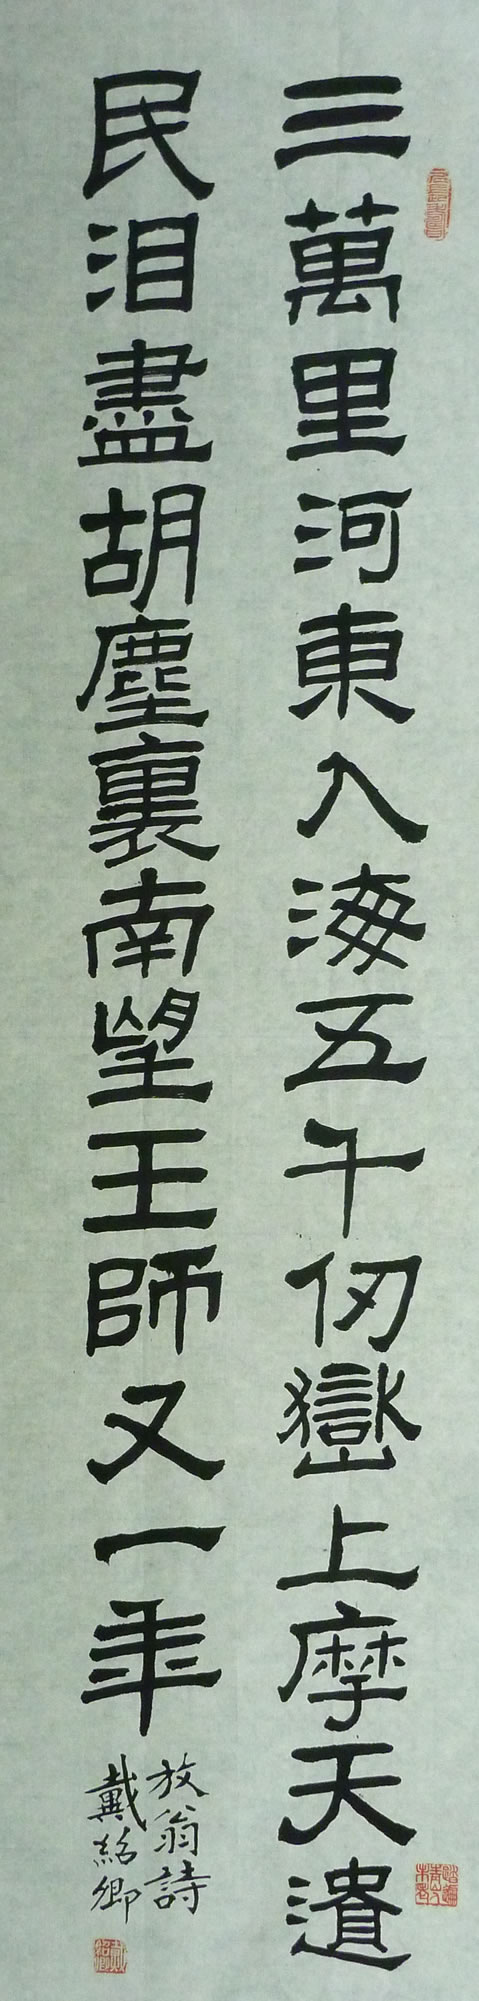 三萬里河東入海五千仞嶽上摩天遺
民泪盡胡塵裏南望王師又一年
放翁詩
戴紹卿